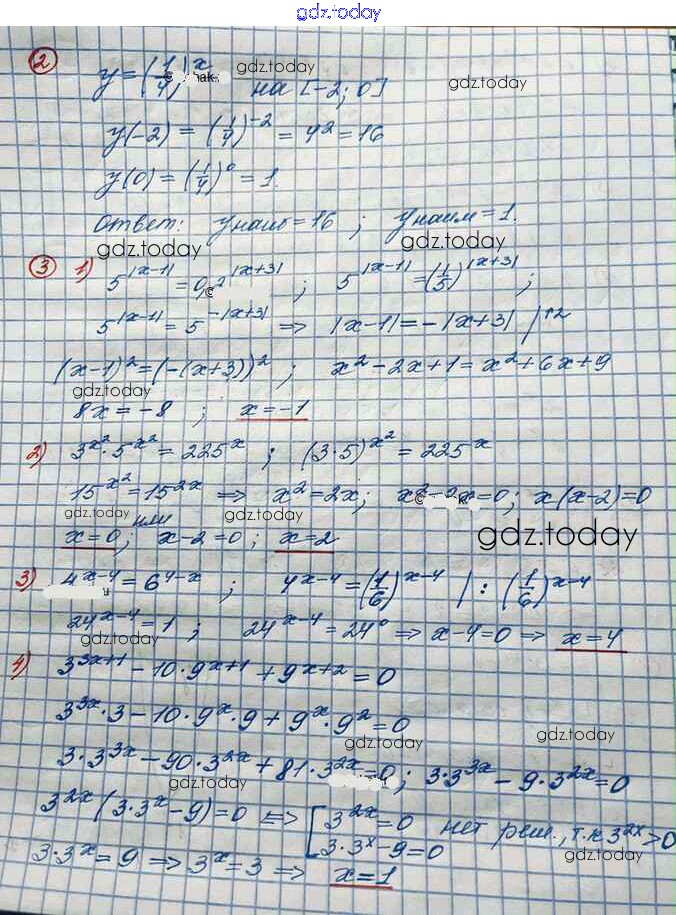 gdz.today
② y=(1/4)^x на [-2; 0]
gdz.today gdz.today
y(-2) = (1/4)^-2 = 4^2 = 16
y(0) = (1/4)^0 = 1.
Ответ: yнаиб = 16 ; yнаим = 1.
gdz.today gdz.today
③ 1) 5^|x-1| = 0,2^|x+3| ; 5^|x-1| = (1/5)^|x+3| ;
5^|x-1| = 5^-|x+3| => |x-1| = -|x+3| |↑2
(x-1)^2 = (-(x+3))^2 ; x^2 - 2x + 1 = x^2 + 6x + 9
gdz.today
8x = -8 ; x = -1
2) 3^x^2 · 5^x^2 = 225^x ; (3·5)^x^2 = 225^x
15^x^2 = 15^2x => x^2 = 2x ; x^2 - 2x = 0 ; x(x-2) = 0
gdz.today gdz.today gdz.today
x = 0 ; или x - 2 = 0 ; x = 2
3) 4^x-4 = 6^4-x ; 4^x-4 = (1/6)^x-4 | : (1/6)^x-4
24^x-4 = 1 ; 24^x-4 = 24^0 => x-4 = 0 => x = 4
gdz.today
4) 3^3x+1 - 10·9^x+1 + 9^x+2 = 0
3^3x · 3 - 10·9^x · 9 + 9^x · 9^2 = 0
gdz.today gdz.today
3·3^3x - 90·3^2x + 81·3^2x = 0 ; 3·3^3x - 9·3^2x = 0
gdz.today gdz.today
3^2x (3·3^x - 9) = 0 <=> [ 3^2x = 0 нет реш., т.к 3^2x > 0
3·3^x - 9 = 0
gdz.today
3·3^x = 9 => 3^x = 3 => x = 1